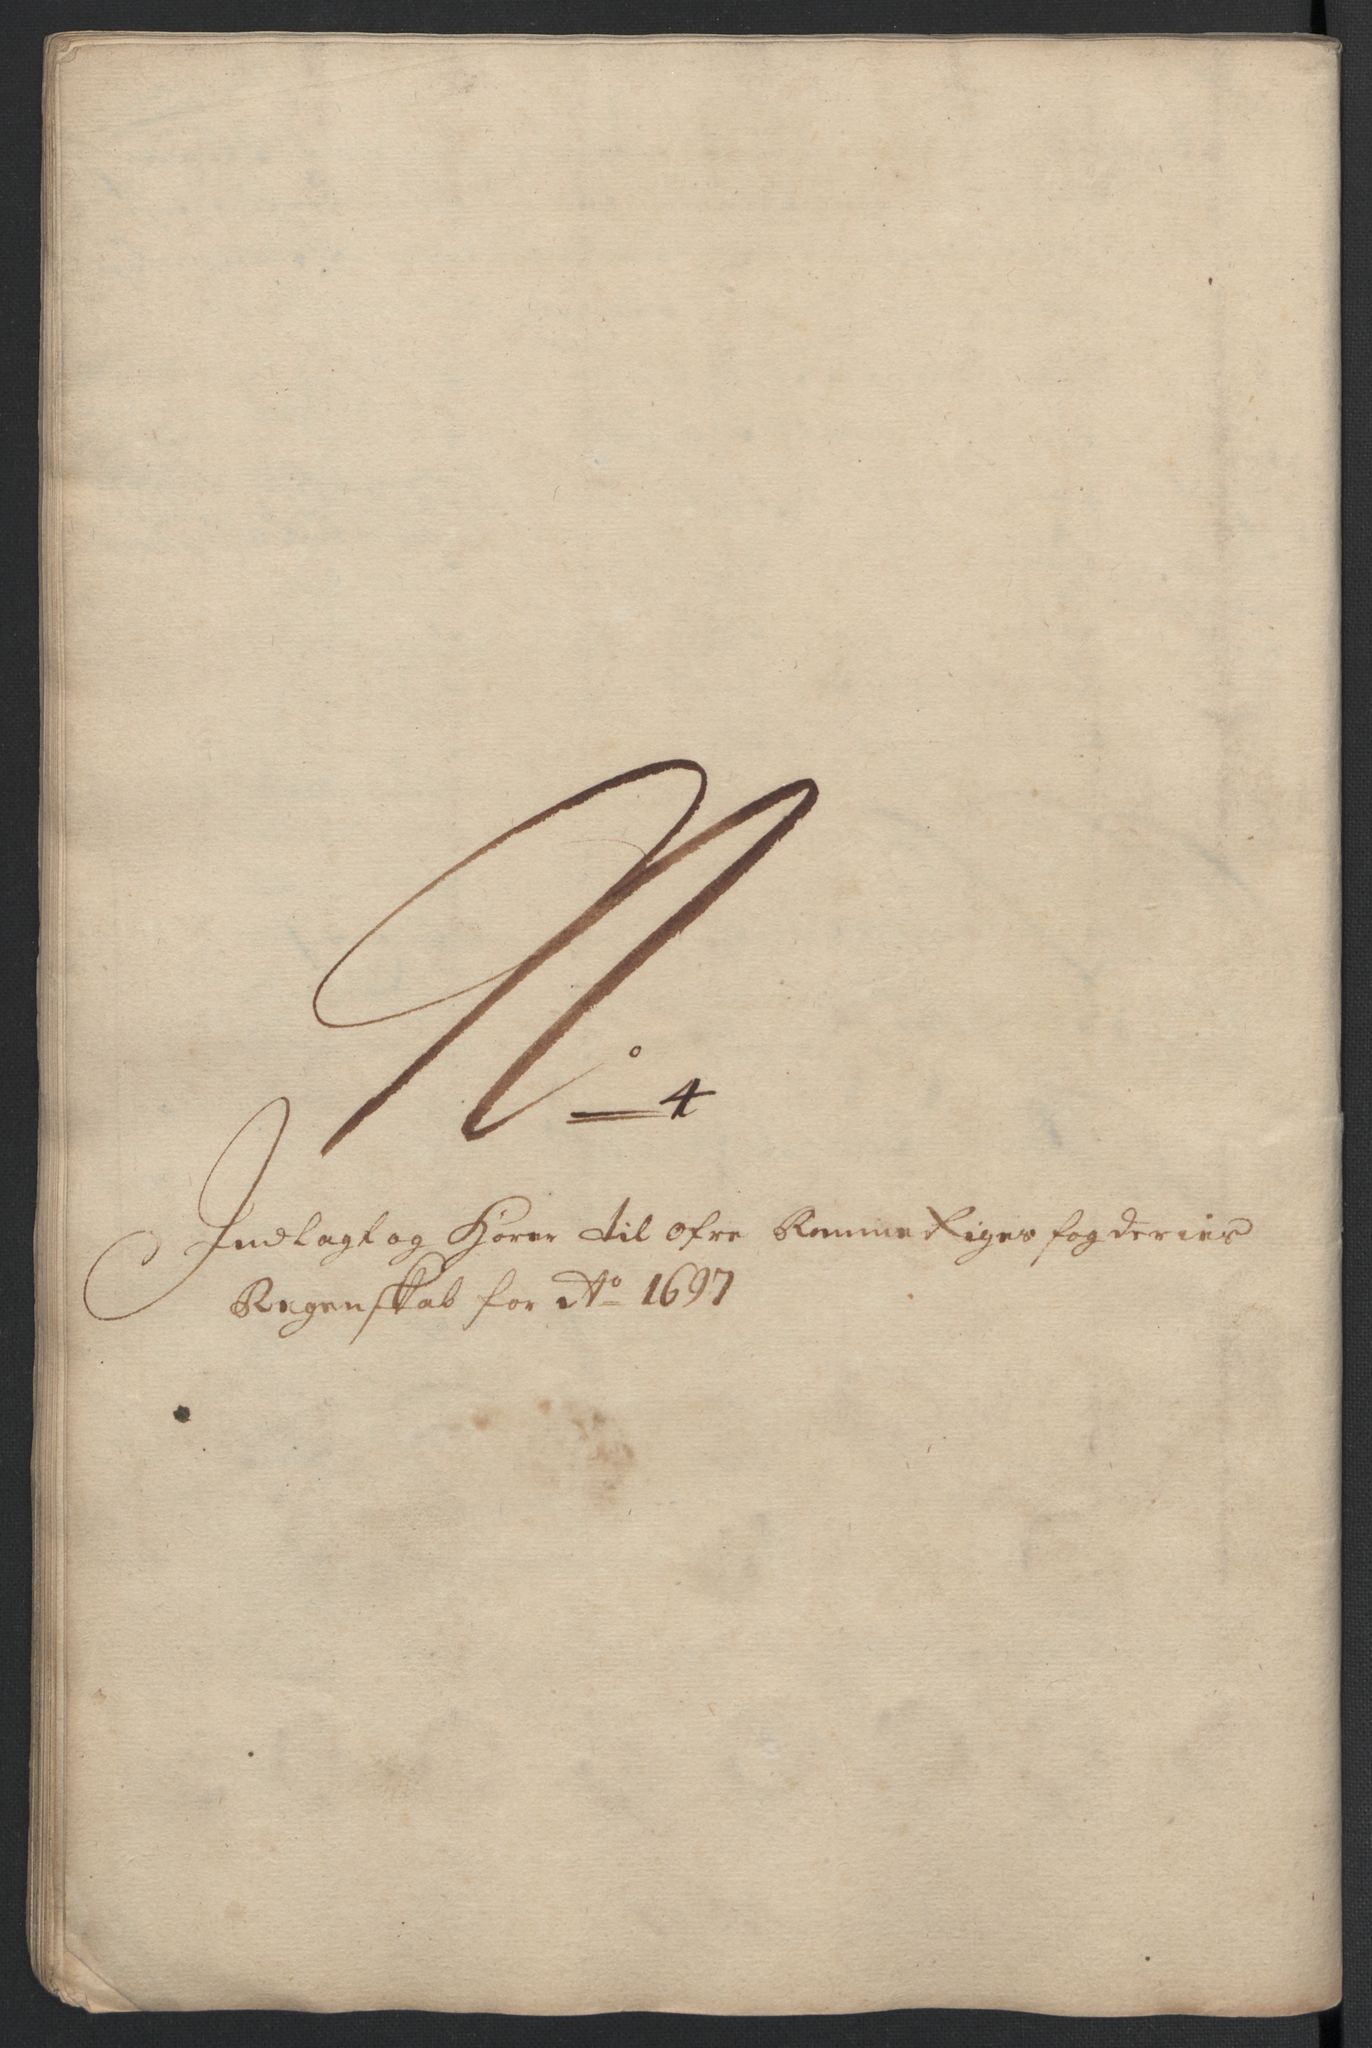 No 4
Indlagt og Hører til Øfre Romme Riges fogderies
Regenskab for Ao 1697